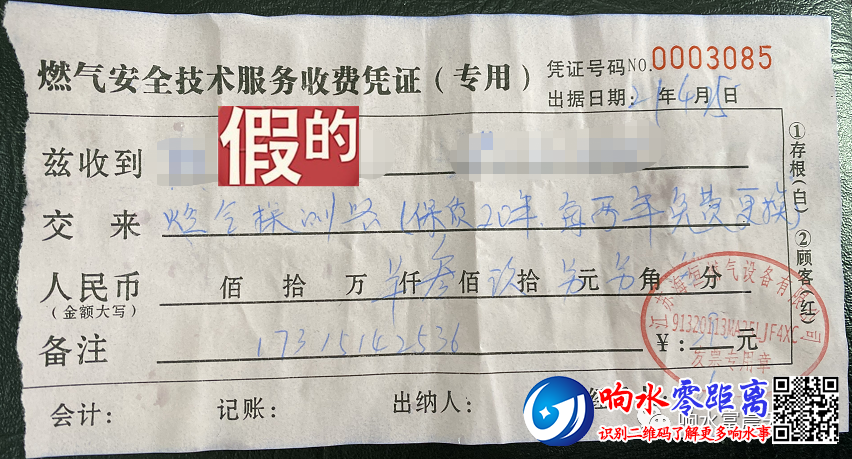 燃气安全技术服务收费凭证（专用）
凭证号码NO.0003085
出据日期：21年4月15日
假的
兹收到
交来 燃气探测器（保质20年、每两年免费更换）
人民币 佰 拾 万 单仟叁佰玖拾另元另角 分
（金额大写）
备注 17315142536
￥：390元
会计： 记账： 出纳人：
①存根（白） ②顾客（红）
江苏海恒燃气设备有限公司
发票专用章
响水零距离
识别二维码了解更多响水事